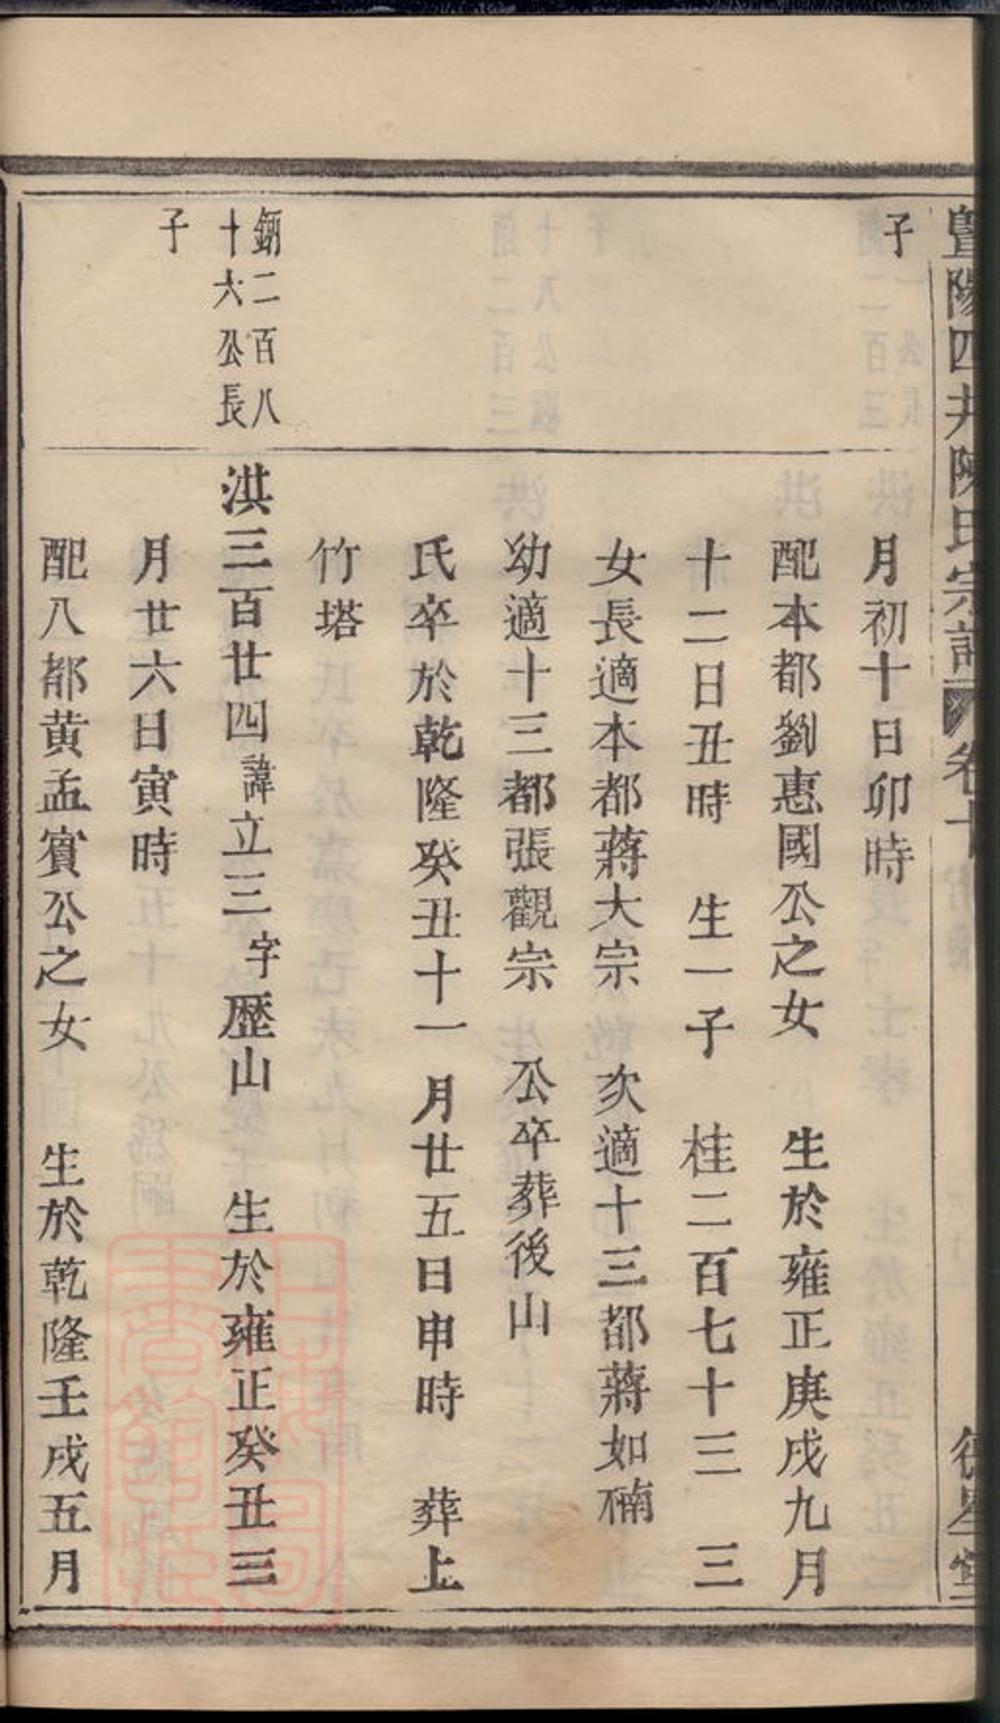 暨陽四井陳氏宗譜 卷十 德星堂
子
月初十日卯時
配本都劉惠國公之女 生於雍正庚戌九月
十二日丑時 生一子 桂二百七十三 三
女長適本都蔣大宗 次適十三都蔣如楠
幼適十三都張觀宗 公卒葬後山
氏卒於乾隆癸丑十一月廿五日申時 葬上
竹塔
鈵二百八
十六公長
子
洪三百廿四諱立三字歷山 生於雍正癸丑三
月廿六日寅時
配八都黄孟賓公之女 生於乾隆壬戌五月